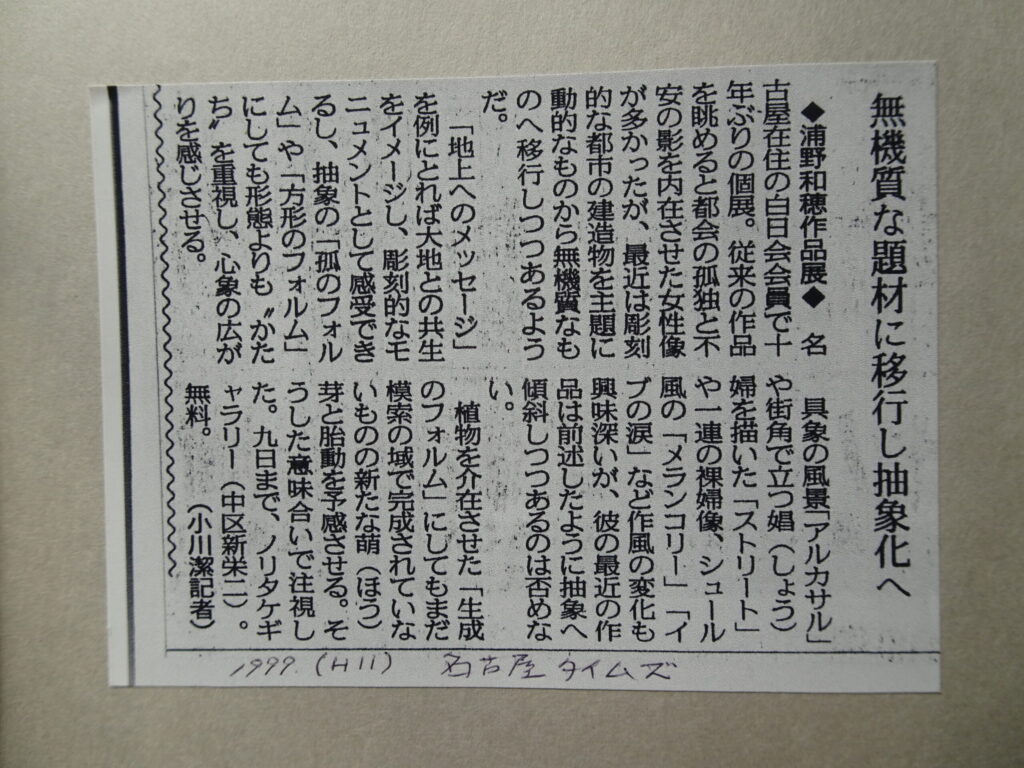 無機質な題材に移行し抽象化へ
◆浦野和穂作品展◆　名
古屋在住の白日会会員で十
年ぶりの個展。従来の作品
を眺めると都会の孤独と不
安の影を内在させた女性像
が多かったが、最近は彫刻
的な都市の建造物を主題に
動的なものから無機質なも
のへ移行しつつあるよう
だ。
「地上へのメッセージ」
を例にとれば大地との共生
をイメージし、彫刻的なモ
ニュメントとして感受でき
るし、抽象の「孤のフォル
ム」や「方形のフォルム」
にしても形態よりも〝かた
ち〟を重視し、心象の広が
りを感じさせる。
具象の風景「アルカサル」
や街角で立つ娼（しょう）
婦を描いた「ストリート」
や一連の裸婦像、シュール
風の「メランコリー」「イ
ブの涙」など作風の変化も
興味深いが、彼の最近の作
品は前述したように抽象へ
傾斜しつつあるのは否めな
い。
植物を介在させた「生成
のフォルム」にしてもまだ
模索の域で完成されていな
いものの新たな萌（ほう）
芽と胎動を予感させる。そ
うした意味合いで注視し
た。九日まで、ノリタケギ
ャラリー（中区新栄二）。
無料。　（小川潔記者）
1999.（H11）　名古屋タイムズ